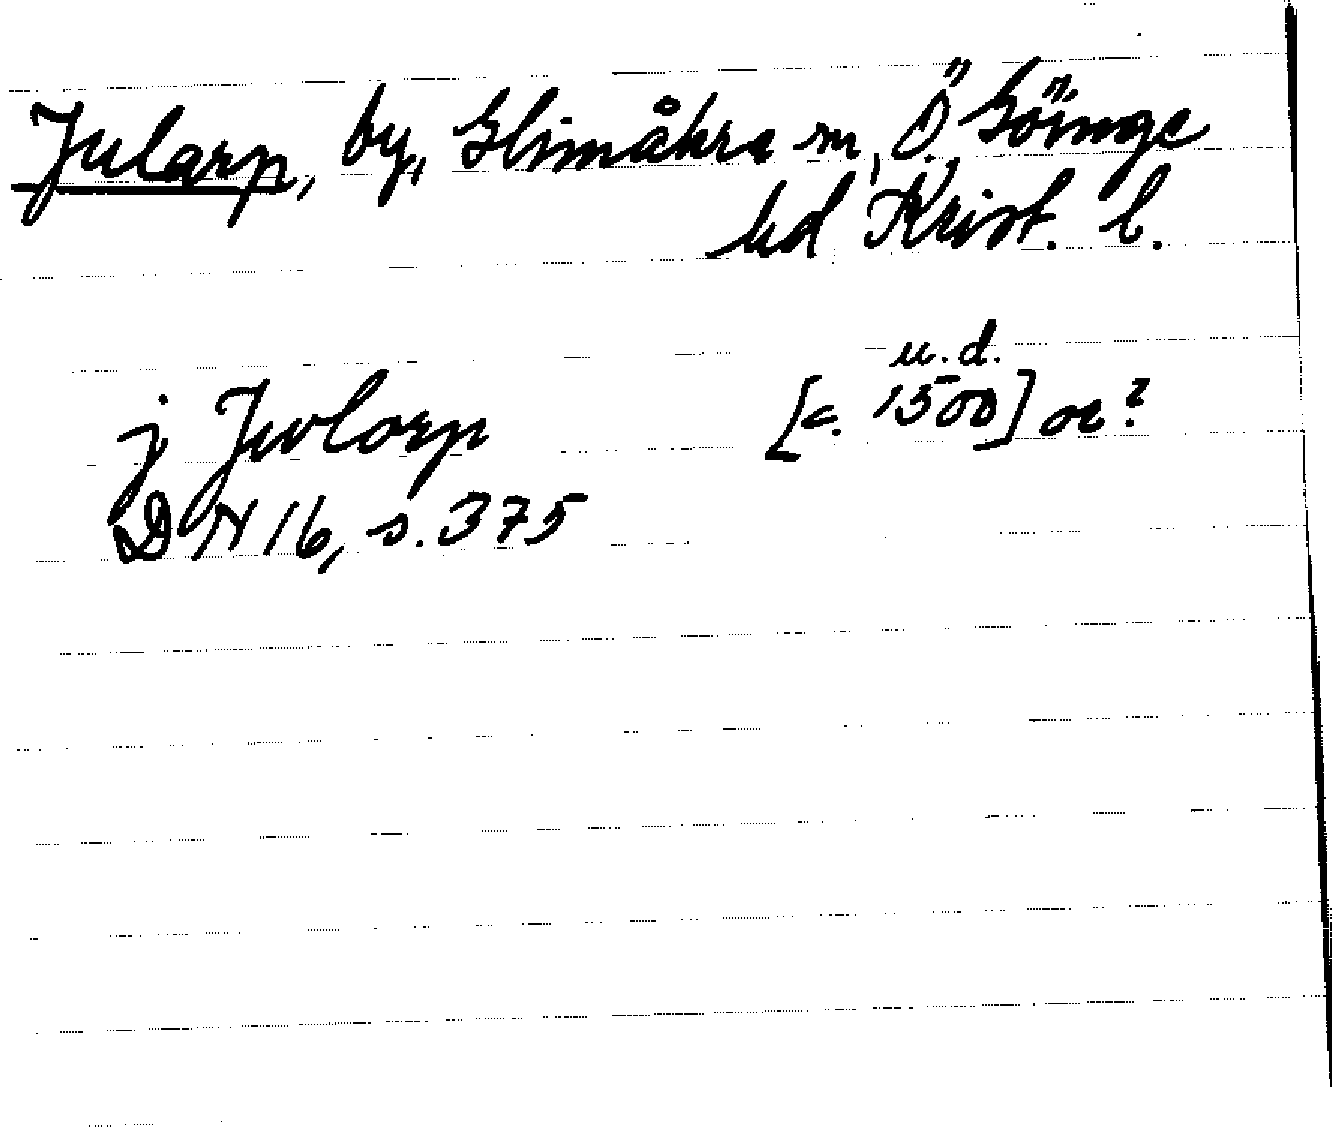 Jularp, by, Glimåkra sn, Ö. Göinge
hd Krist. l.
u.d.
j Jwlorp [c. 1500] or?
DN 16, s. 375